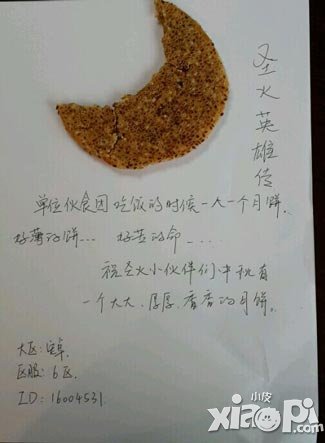 圣火英雄传
单位伙食因吃饭的时候一人一个月饼.
好薄的饼... 好苦的命....
祝圣火小伙伴们中秋有
一个大大、厚厚、香香的月饼.
大区:安卓.
区服:6区.
ID:16004531.
小皮
xiaopi.com